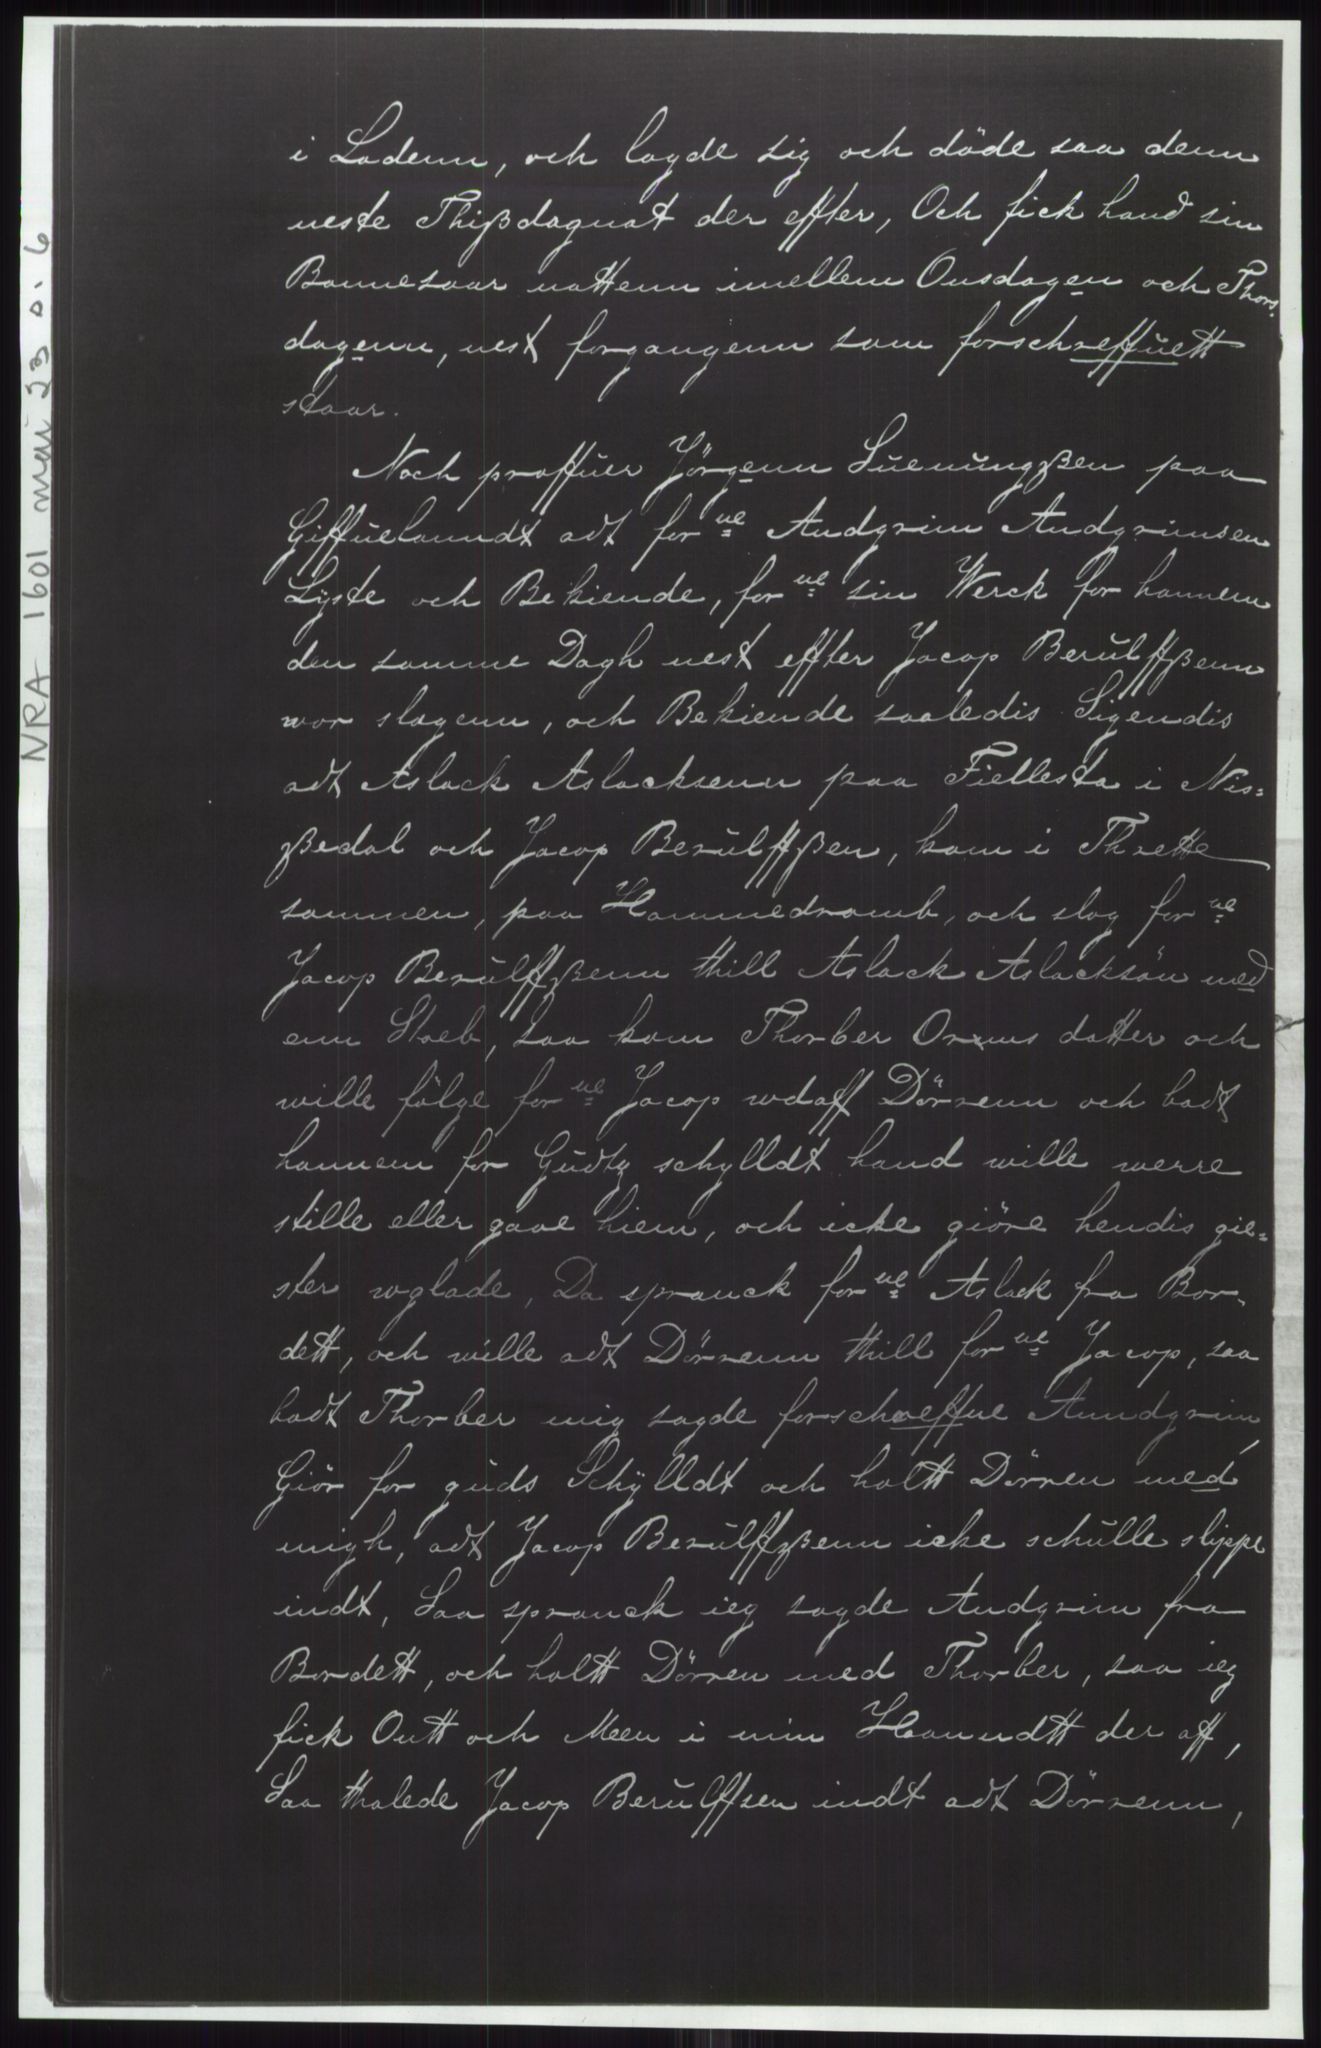 NRA 1601 mai 23 o. 6
i Ladenn, och lagde sig och döde saa denn
neste Thißdagnat der effter, Och fick hand sin
Bannesaar nattenn imellem Onsdagen och Thors
dagenn, nest forgangenn som forschreffuett
staar.
Noch prøffuer Jörgenn Suenungßen paa
Giffuelanndt adt forne Andgrim Andgrimsen
Lyste och Bekiende, forne sin Werck for hannem
den samme Dagh nest effter Jacop Berulffßenn
wor slagenn, och Bekiende saaledis Sigendis
adt Aslack Aslacksenn paa Fiellesta i Nis=
ßedal och Jacop Berulffßen, kam i Thrette
sammen, paa Hammedramb, och slog forne
Jacop Berulffßenn thill Aslack Aslacksön med
enn Staeb, Saa kam Thorber Orms datter och
wille fölge forne Jacop wdaff Dörrenn och badt
hannem for Gudtz schylldt hand wille werre
stille eller gaae hiem, och icke giöre hendis gie=
ster wglade, Da spranck forne Aslack fra Bor-
dett, och wille adt Dörrenn thill forne Jacop, saa
badt Thorber mig sagde forschreffne Anndgrim,
Giör for guds Schylldt och haltt Dörren med
migh, adt Jacop Berulffßenn icke schulle slippe
indt, Saa spranck ieg sagde Andgrim fra
Bordett, och haltt Dörren med Thorber, saa ieg
fick Ontt och Meen i min Haanndtt der aff,
Saa thalede Jacop Berulffsen indt adt Dörrenn,